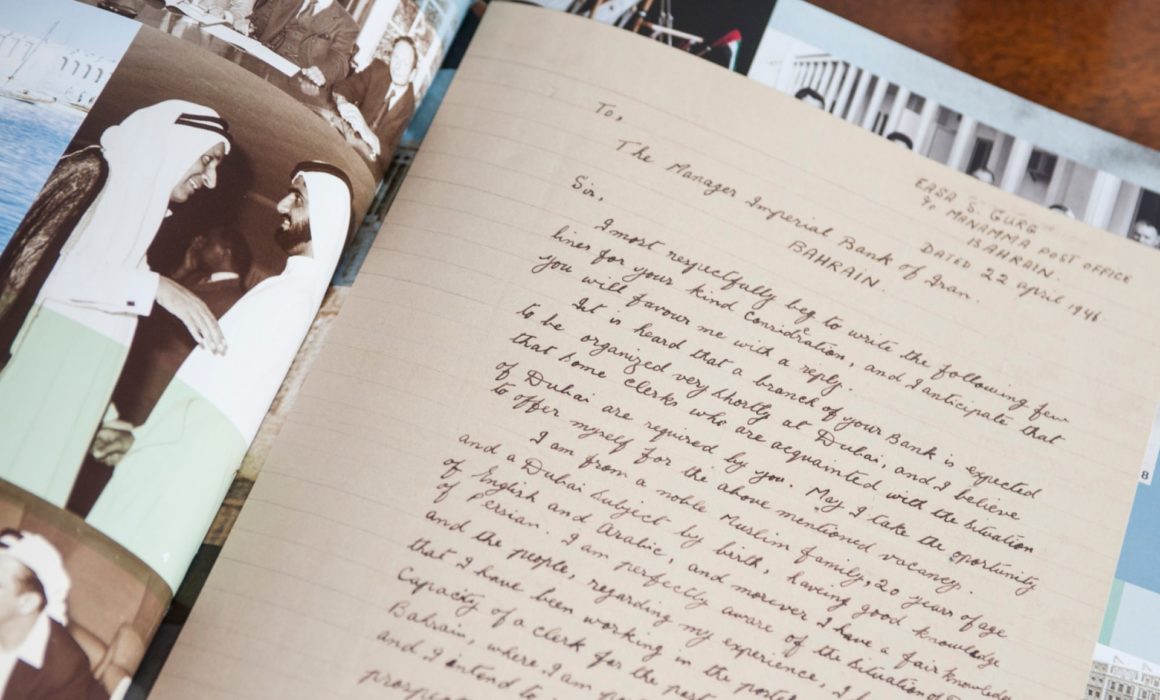 EASA S. GURG
c/o MANAMMA POST OFFICE
BAHRAIN.
DATED 22 april 1946
To,
The Manager Imperial Bank of Iran.
BAHRAIN.
Sir,
I most respectfully beg to write the following few
lines for your kind consideration, and I anticipate that
you will favour me with a reply.
It is heard that a branch of your Bank is expected
to be organized very shortly at Dubai, and I believe
that some clerks who are acquainted with the situation
of Dubai are required by you. May I take the oportunity
to offer myself for the above mentioned vacancy.
I am from a noble Muslim family, 20 years of age
and a Dubai Subject by birth, having good knowledge
of English and Arabic, and morever I have a fair knowledge
of Persian. I am perfectly aware of the situation of
and the people, regarding my experience, I
that I have been working in the postal
Capacity of a clerk for the past
Bahrain, where I am
and I intend to
8